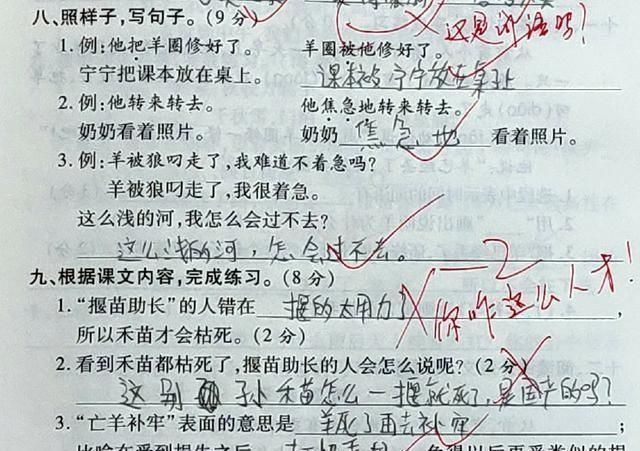 八、照样子，写句子。(9分)
这是对话吗？
1. 例：他把羊圈修好了。 羊圈被他修好了。
宁宁把课本放在桌上。 课本被宁宁放在桌上
2. 例：他转来转去。 他焦急地转来转去。
奶奶看着照片。 奶奶焦急地看着照片。
3. 例：羊被狼叼走了，我难道不着急吗？
羊被狼叼走了，我很着急。
这么浅的河，我怎么会过不去？
这么浅的河，怎会过不去。
九、根据课文内容，完成练习。(8分) -2
1. “揠苗助长”的人错在 揠的太用力了，
你咋这么人才！
所以禾苗才会枯死。(2分)
2. 看到禾苗都枯死了，揠苗助长的人会怎么说呢？(2分)
这别 子小禾苗怎么一揠就死了，是国产的吗？
3. “亡羊补牢”表面的意思是 羊死了再去补牢；